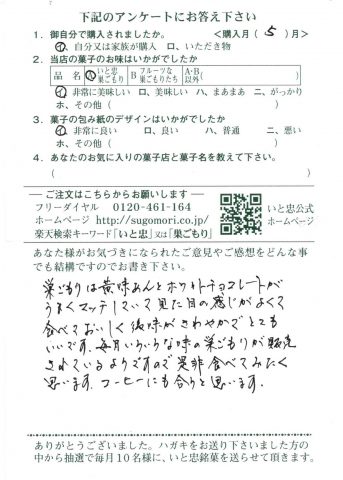 下記のアンケートにお答え下さい
1. 御自分で購入されましたか。 <購入月(5)月>
イ、自分又は家族が購入 ロ、いただき物
2. 当店の菓子のお味はいかがでしたか
品名 A いと忠巣ごもり B フルーツな巣ごもりたち A・B以外( )
イ、非常に美味しい ロ、美味しい ハ、まあまあ ニ、がっかり
ホ、その他( )
3. 菓子の包み紙のデザインはいかがでしたか
イ、非常に良い ロ、良い ハ、普通 ニ、悪い
ホ、その他( )
4. あなたのお気に入りの菓子店と菓子名を教えて下さい。
( )
ご注文はこちらからお願いします
フリーダイヤル 0120-461-164
ホームページ http://sugomori.co.jp/
楽天検索キーワード「いと忠」又は「巣ごもり」
いと忠公式
ホームページ
あなた様がお気づきになられたご意見やご感想をどんな事
でも結構ですのでお書き下さい。
巣ごもりは黄味あんとホワイトチョコレートが
うまくマッチしていて見た目の感じがよくて
食べておいしく後味がさわやかでとても
いいです。毎月いろいろな味の巣ごもりが販売
されているようですので是非食べてみたく
思います。コーヒーにも合うと思います。
ありがとうございました。ハガキをお送り下さいました方の
中から抽選で毎月10名様に、いと忠銘菓を送らせて頂きます。